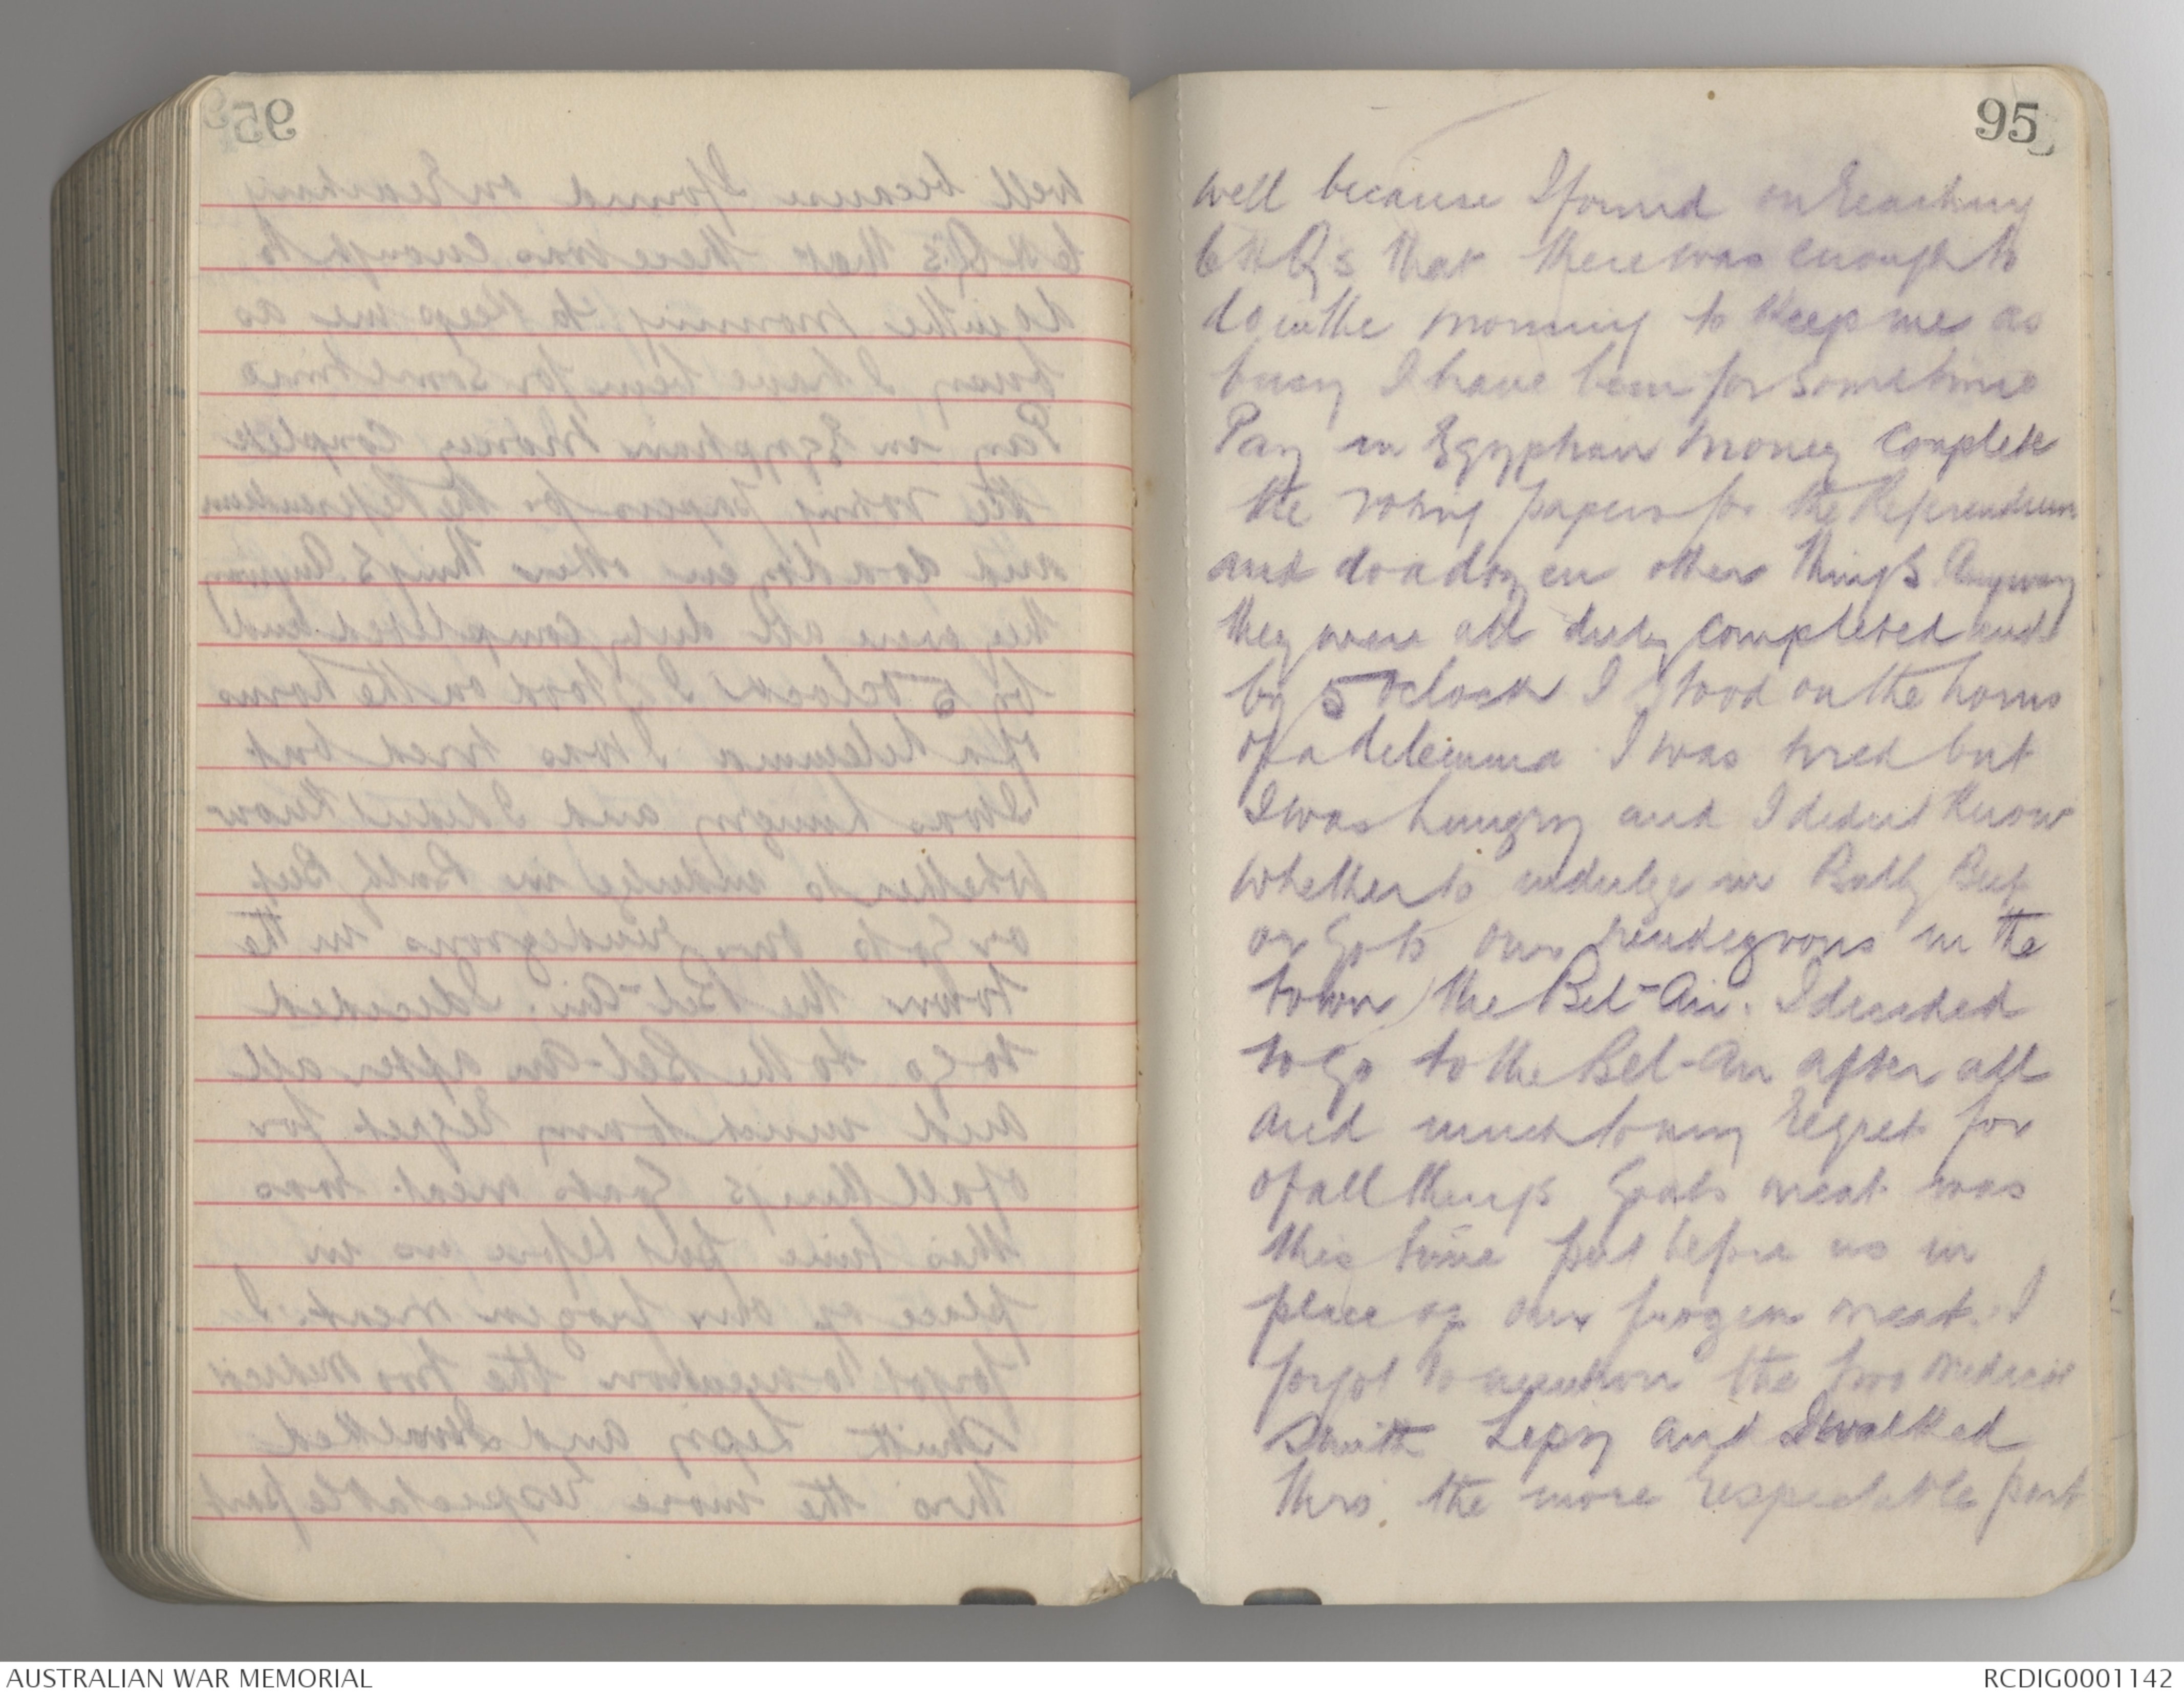 95
well because I found on reaching
Qs that there was enough to
do in the morning to keep me as
busy I have been for sometime
Pay in Egyptian money complete
the voting papers for the Referendum
and do a dozen other things. Anyway
they were all duly completed and
by 5 oclock I stood on the horns
of a delemma I was tired but
I was hungry and I didnt know
whether to indulge in Bully Beef
or go to our rendegvous in the
town the Bel-Air. I decided
to go to the Bel-Air after all
and much to my regret for
of all things goats meat was
this time put before us in
place of our frozen meat. I
forgot to mention the two
Smith and I walked
thro. the more respectable part
AUSTRALIAN WAR MEMORIAL
RCDIG0001142